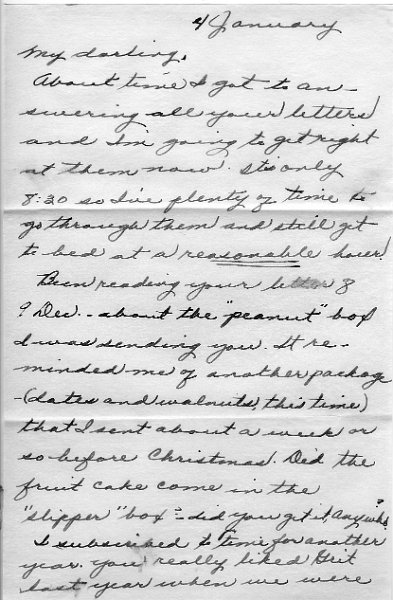 4 January
My darling,
About time I got to an-
swering all your letters
and I'm going to get right
at them now. It's only
8:30 so I've plenty of time to
go through them and still get
to bed at a reasonable hour!
Been reading your letter of
9 Dec. - about the "peanut" box
I was sending you. It re-
minded me of another package
- (dates and walnuts, this time)
that I sent about a week or
so before Christmas. Did the
fruit cake come in the
"slipper" box? - did you get it, anywhо?
I subscribed to Time for another
year. you really liked it
last year when we were